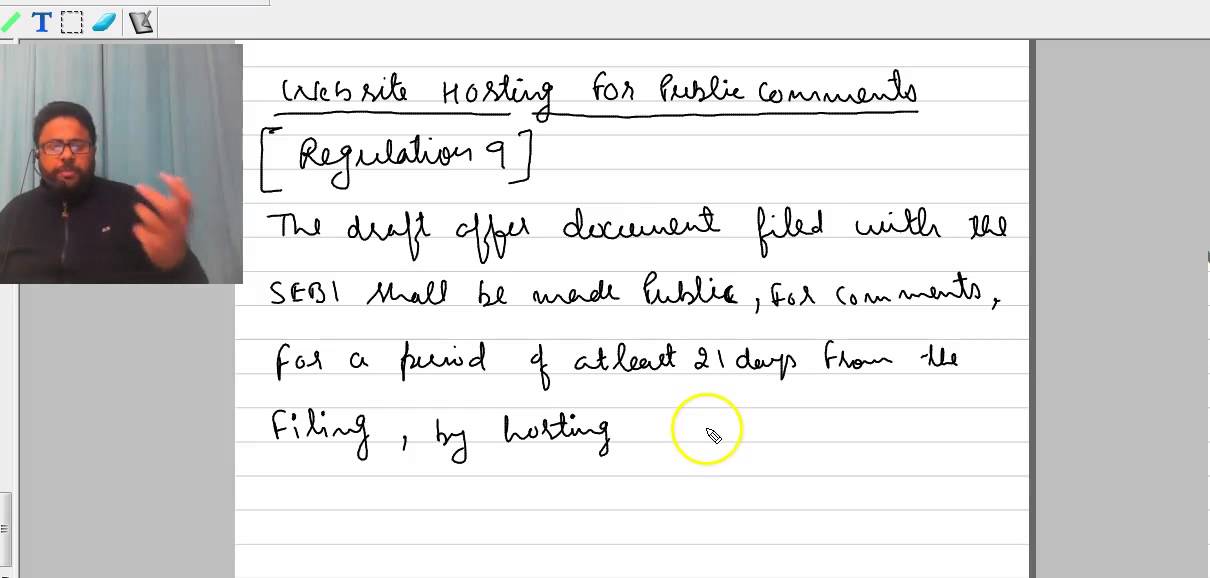 Website Hosting for Public Comments
[Regulation 9]
The draft offer document filed with the
SEBI shall be made Public, for comments,
for a period of atleast 21 days from the
Filing, by hosting